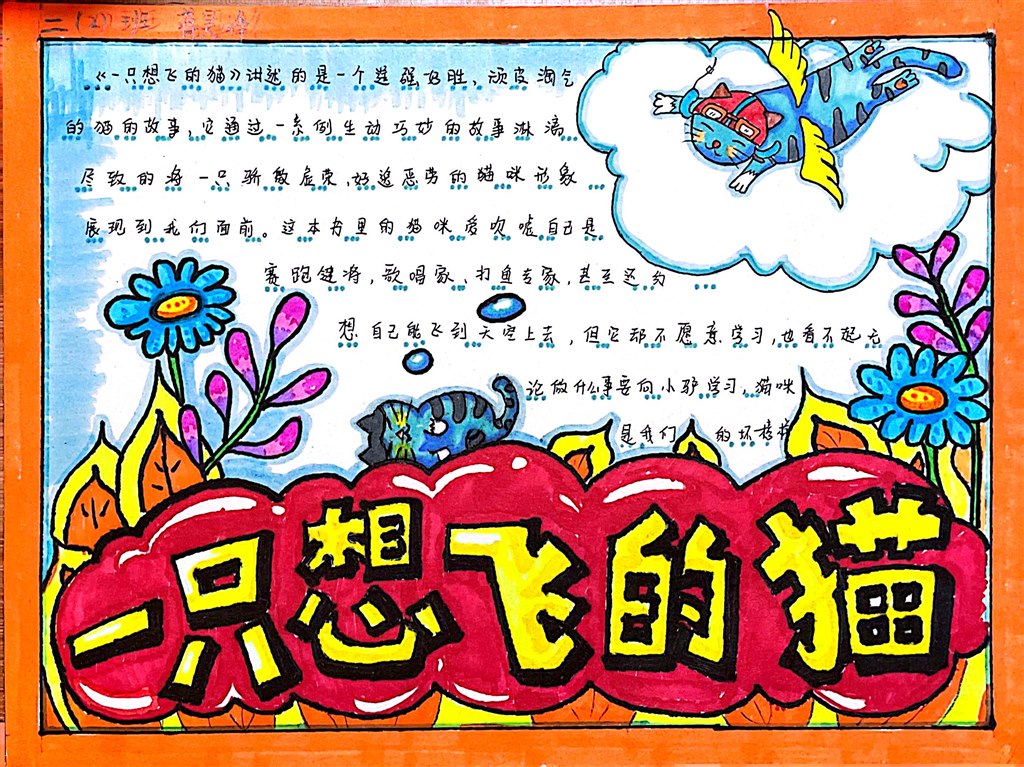 二（2）班
《一只想飞的猫》讲述的是一个逞强好胜，顽皮淘气
的猫的故事，它通过一系例生动巧妙的故事淋漓
尽致的将一只骄傲虚荣，好逸恶劳的猫咪形象
展现到我们面前。这本书里的猫咪爱吹嘘自己是
赛跑健将，歌唱家、打鱼专家，甚至还幻
想自己能飞到天空上去，但它却不愿意学习，也看不起无
论做什么事要向小驴学习，猫咪
是我们的坏榜样
一只想飞的猫